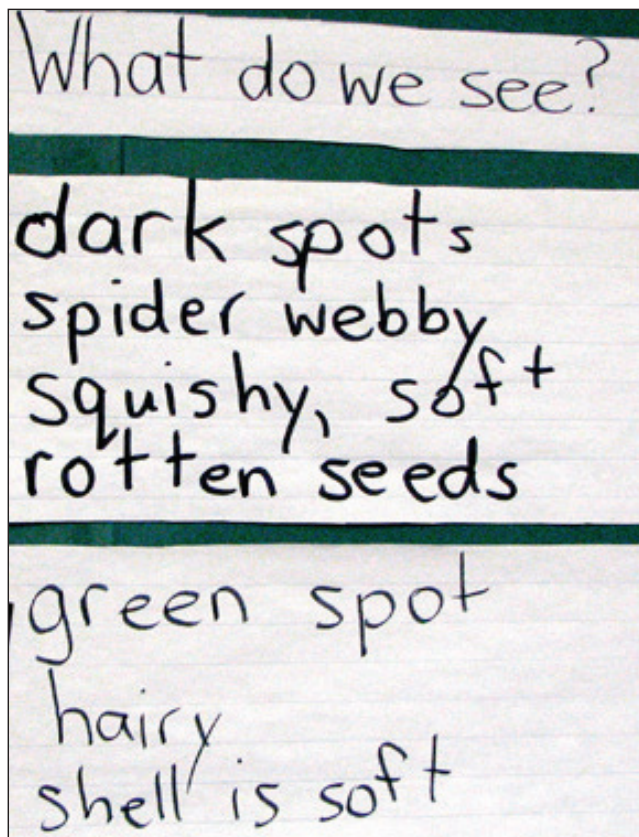 What do we see?
dark spots
spider webby
squishy, soft
rotten seeds
green spot
hairy
shell is soft